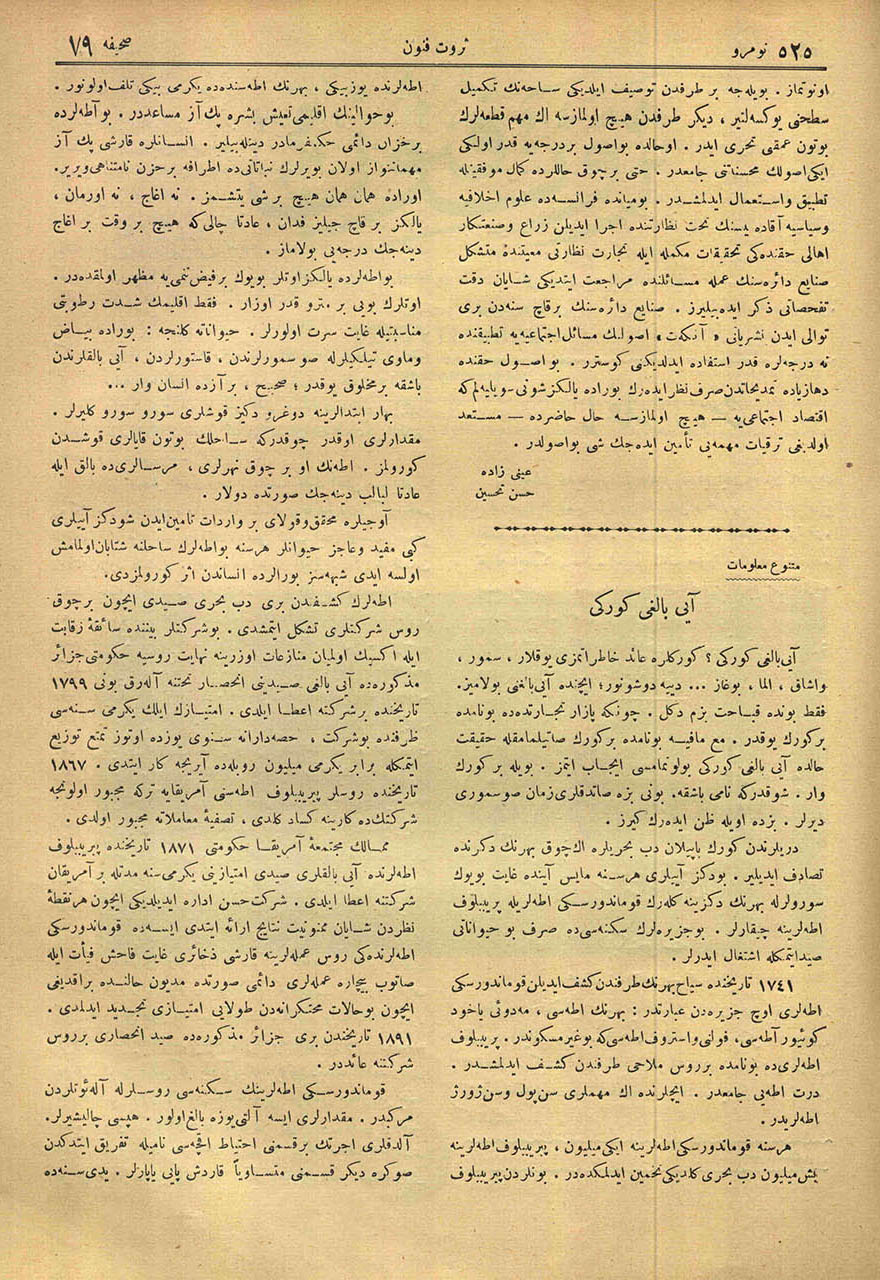 ٥٢٥ نومرو
ثروت فنون
صحیفه ٧٩
اونوتماز . بویله‌جه بر طرفدن توصیف ایلدیكی ساحه‌نك تكمیل
سطحنی یوكسه‌لنیر ، دیكر طرفدن هیچ اولمازسه اك مهم قطعه‌لرك
بوتون عمقی تحری ایدر . اوحالده بواصول بردرجه‌یه قدر اولكی
ایكی اصولك محسناتنی جامعدر . حتی برچوق حاللرده كمال موفقیتله
تطبیق واستعمال ایدلمشدر . بومیانده فرانسه‌ده علوم اخلاقیه
وسیاسیه آقاده میسنك تحت نظارتنده اجرا ایدیلن زراع وصنعتكار
اهالی حقنده‌كی تحقیقات مكمله ایله تجارت نظارتی معیتنده متشكل
صنایع دائره‌سنك عمله مسائلنده مراجعت ایتدیكی شایان دقت
تفحصاتی ذكر ایده‌بیلیرز . صنایع دائره‌سنك برقاچ سنه‌دن بری
توالی ایدن نشریاتی « آنكه‌ت » اصولنك مسائل اجتماعیه‌یه تطبیقنده
نه درجه‌لره قدر استفاده ایدلدیكنی كوسترر . بواصول حقنده
دهازیاده تمدیحاتدن صرف نظر ایده‌رك بوراده یالكز شونی سویلیه‌لم كه
اقتصاد اجتماعی‌یه — هیچ اولمازسه حال حاضرده — مستعد
اولدیغی ترقیات مهمه‌یی تأمین ایده‌جك شی بواصولدر .
عینی زاده
حسن تحسین
متنوع معلومات
آیی بالغی كوركی
آیی بالغی كوركی ؟ كوركلره عائد خاطراتمزی یوقلار ، سمور ،
واشاق ، الما ، بوغاز ... دییه دوشونور؛ ایچنده آیی بالغنی بولامیز.
فقط بونده قباحت بزم دكل . چونكه پازار تجارتده‌ده بونامده
بركورك یوقدر . مع مافیه بونامده بركورك صاتیلمامقله حقیقت
حالده آیی بالغی كوركی بولونمامسی ایجاب ایتمز . بویله بركورك
وار . شوقدركه نامی باشقه. بونی بزه صاتدقلری زمان صوسموری
دیرلر . بزده اویله ظن ایده‌رك كیرز .
دریلرندن كورك یاپیلان دب بحریلره اك چوق بهرنك دكزنده
تصادف ایدیلیر . بودكز آییلری هرسنه مایس آینده غایت بویوك
سورولرله بهرنك دكزینه كله‌رك قوماندورسكی اطه‌لریله پریبیلوف
اطه‌لرینه چیقارلر . بوجزیره‌لرك سكنه‌سی‌ده صرف بو حیواناتی
صید ایتمكله اشتغال ایدرلر .
١٧٤١ تاریخنده سیاح بهرنك طرفندن كشف ایدیلن قوماندورسكی
اطه‌لری اوچ جزیره‌دن عبارتدر : بهرنك اطه‌سی ، مه‌دوئی یاخود
كوئیور آطه‌سی، فوانی واستروف اطه‌سی كه بوغیرمسكوندر . پریبیلوف
اطه‌لری‌ده بونامده برروس ملاحی طرفندن كشف ایدلمشدر .
درت اطه‌یی جامعدر . ایچلرنده اك مهملری سن پول وسن ژورژ
اطه‌لریدر .
هرسنه قوماندورسكی اطه‌لرینه ایكی میلیون ، پریبیلوف اطه‌لرینه
بش میلیون دب بحری كلدیكی تخمین ایدلمكده‌در . بونلردن پریبیلوف
اطه‌لرنده یوزبیكی ، بهرنك اطه‌سنده‌ده یكرمی بیكی تلف اولونور .
بوحوالینك اقلیمی تعیش بشره پك آز مساعددر . بوآطه‌لرده
برخزان دائمی حكمفرمادر دینیله‌بیلیر . انسانلره قارشی پك آز
مهماننواز اولان بویرلرك نباتاتی‌ده اطرافه برحزن نامتناهی ویریر.
اوراده همان همان هیچ بر شی یتشمز . نه اغاج ، نه اورمان ،
یالكز بر قاچ جیلیز فدان ، عادتا چالی كه هیچ بر وقت بر اغاج
دینه‌جك درجه‌یی بولاماز .
بواطه‌لرده یالكز اوتلر بویوك برفیض تنمی‌یه مظهر اولمقده‌در .
اوتلرك بویی بر مترو قدر اوزار . فقط اقلیمك شدت رطوبتی
مناسبتیله غایت سرت اولورلر . حیواناته كلنجه : بوراده بیاض
وماوی تیلكیلرله صو سمورلرندن ، قاستورلردن ، آیی بالقلرندن
باشقه برمخلوق یوقدر ؛ صحیح ، برآزده انسان وار ...
بهار ابتدالرینه دوغرو دكیز قوشلری سورو سورو كلیرلر .
مقدارلری اوقدر چوقدركه ساحلك بوتون قایالری قوشدن
كورولمز . اطه‌نك او بر چوق نهرلری ، مرسالری‌ده بالق ایله
عادتا لبالب دینه‌جك صورتده دولار .
آوجیلره محقق وقولای بر واردات تامین ایدن شو دكز آییلری
كبی مفید وعاجز حیوانلر هرسنه بواطه‌لرك ساحلنه شتابان اولمامش
اولسه ایدی شبهه‌سز بورالرده انساندن اثر كورولمزدی.
اطه‌لرك كشفندن بری دب بحری صیدی ایچون برچوق
روس شركتلری تشكل ایتمشدی . بوشركتلر بیننده سائقهٔ رقابت
ایله اكسیك اولمیان منازعات اوزرینه نهایت روسیه حكومتی جزائر
مذكوره‌ده آیی بالغی صیدینی انحصار تحتنه آله‌رق بونی ١٧٩٩
تاریخنده برشركته اعطا ایلدی . امتیازك ایلك یكرمی سنه‌سی
ظرفنده بوشركت ، حصه‌دارانه سنوی یوزده اوتوز تمتع توزیع
ایتمكله برابر یكرمی میلیون روبله‌ده آیریجه كار ایتدی . ١٨٦٧
تاریخنده روسلر پریبیلوف اطه‌سنی آمریقایه تركه مجبور اولونجه
شركتك‌ده كارینه كساد كلدی ، تصفیهٔ معاملاته مجبور اولدی .
ممالك مجتمعهٔ آمریقا حكومتی ١٨٧١ تاریخنده پریبیلوف
اطه‌لرنده آیی بالقلری صیدی امتیازینی یكرمی سنه مدتله بر آمریقان
شركتنه اعطا ایلدی . شركت حسن اداره ایدیلدیكی ایچون هرنقطهٔ
نظردن شایان ممنونیت نتایج ارائه ایتدی ایسه‌ده قوماندورسكی
اطه‌لرنده‌كی روس عمله‌لرینه قارشی ذخائری غایت فاحش فیأت ایله
صاتوب بیچاره عمله‌لری دائمی صورتده مدیون حالنده براقدیغی
ایچون بوحالات محتكرانه‌دن طولایی امتیازی تجدید ایدلمدی .
١٨٩١ تاریخندن بری جزائر مذكوره‌ده صید انحصاری برروس
شركتنه عائددر .
قوماندورسكی اطه‌لرینك سكنه‌سی روسلرله آله‌ئوتلردن
مركبدر . مقدارلری ایسه آلتی‌یوزه بالغ اولور . هپسی چالیشیرلر.
آلدقلری اجرتك برقسمنی احتیاط اقچه‌سی نامیله تفریق ایتدكدن
صوكره دیكر قسمنی متساویاً قاردش پایی یاپارلر . یدی سنه‌ده